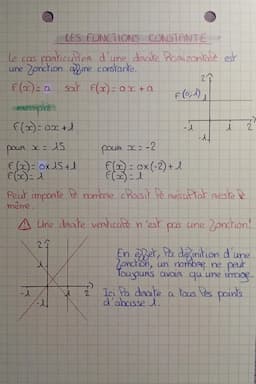 LES FONCTIONS CONSTANTE
Le cas particulier d'une droite horizontale est
une fonction affine constante.
F(x)=a soit F(x)=0x+a
exemple:
F(x)=0x+1
pour x=15 pour x=-2
F(x)=0x15+1 F(x)=0x(-2)+1
F(x)=1 F(x)=1
2
F(0;1)
-1 1 2
-1
Peut importe le nombre choisit le résultat reste le
même.
⚠ Une droite verticale n'est pas une fonction!
2
1
-1 1 2
-1
En effet, la définition d'une
fonction, un nombre ne peut
toujours avoir qu'une image.
Ici la droite a tous les points
d'abscisse 1.